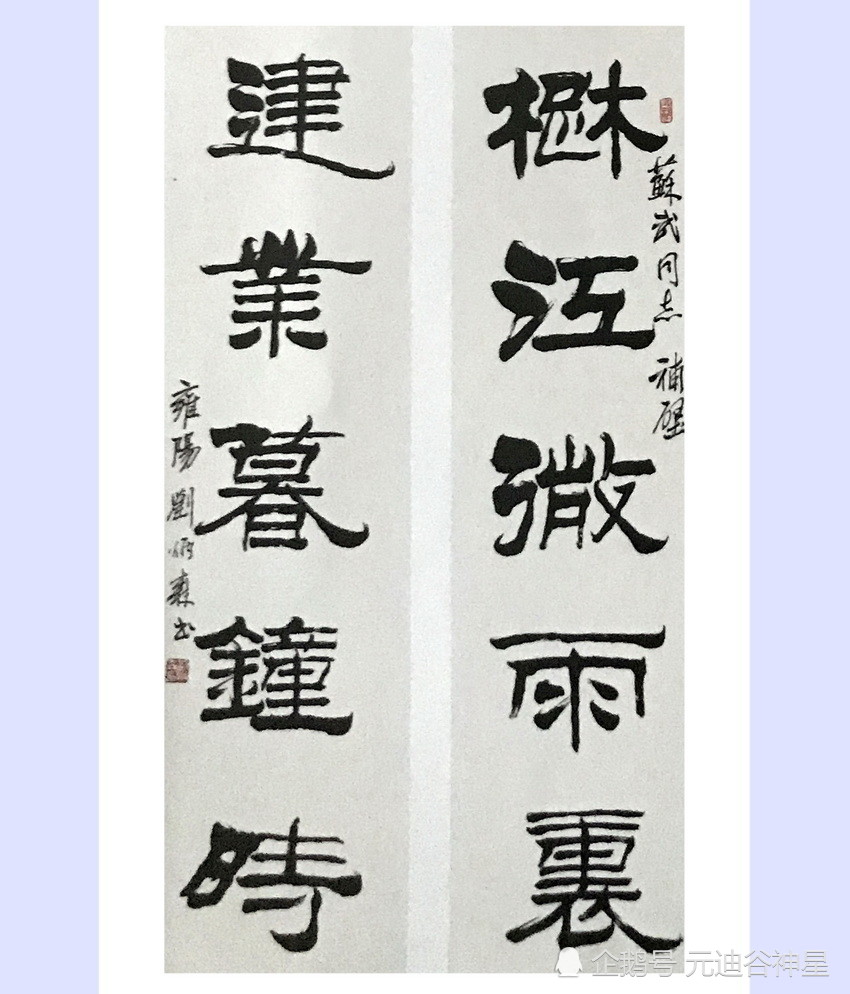 蘇武同志 補壁
楚江微雨裏
建業暮鐘時
雍陽劉炳森书
企鹅号 元迪谷神星